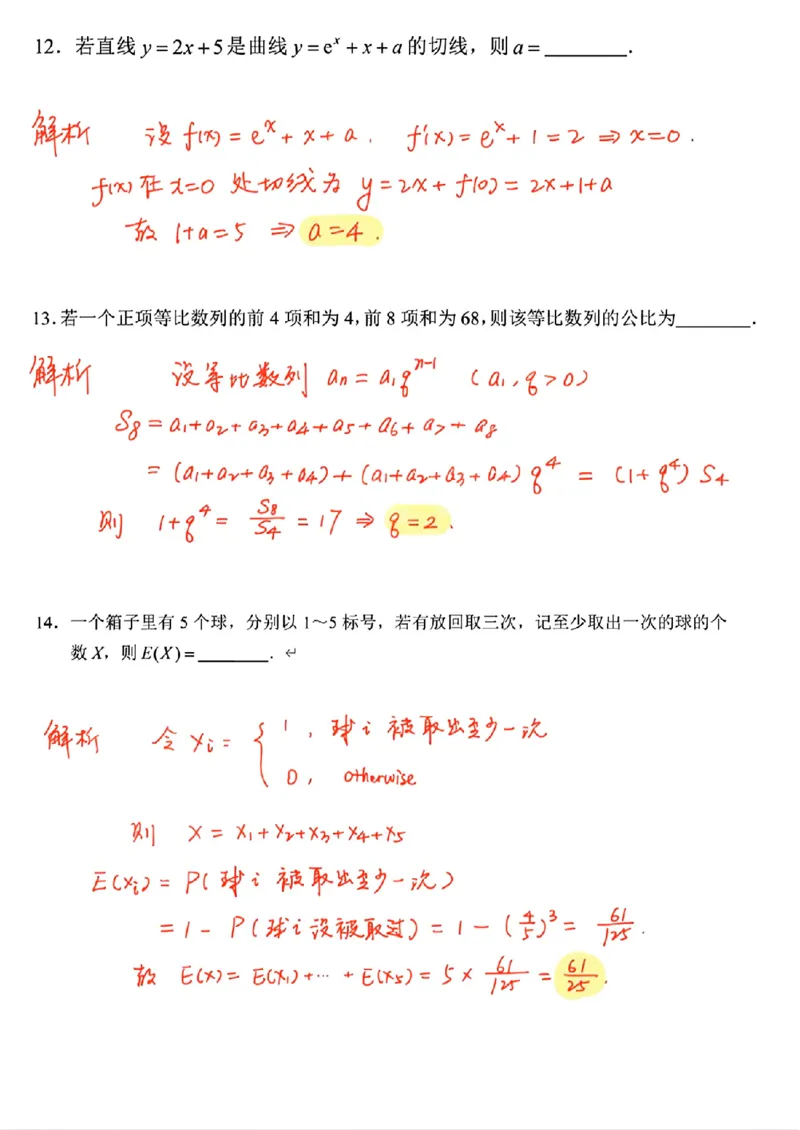 12．若直线 y=2x+5是曲线 y=eˣ+x+a 的切线，则 a=________．
解析 设 f(x)=eˣ+x+a． f'(x)=eˣ+1=2 ⇒ x=0．
f(x)在 x=0 处切线为 y=2x+f(0)=2x+1+a
故 1+a=5 ⇒ a=4．
13.若一个正项等比数列的前 4 项和为 4,前 8 项和为 68,则该等比数列的公比为________．
解析 设等比数列 aₙ=a₁qⁿ⁻¹ (a₁,q>0)
S₈=a₁+a₂+a₃+a₄+a₅+a₆+a₇+a₈
=(a₁+a₂+a₃+a₄)+(a₁+a₂+a₃+a₄)q⁴ = (1+q⁴)S₄
则 1+q⁴=S₈/S₄=17 ⇒ q=2．
14．一个箱子里有 5 个球，分别以 1～5 标号，若有放回取三次，记至少取出一次的球的个
数 X，则 E(X)=________．↵
解析 令 Xᵢ= { 1，球 i 被取出至少一次
0， otherwise
则 X=X₁+X₂+X₃+X₄+X₅
E(Xᵢ)=P(球 i 被取出至少一次)
=1-P(球 i 没被取过)=1-(4/5)³=61/125．
故 E(X)=E(X₁)+…+E(X₅)=5×61/125=61/25．